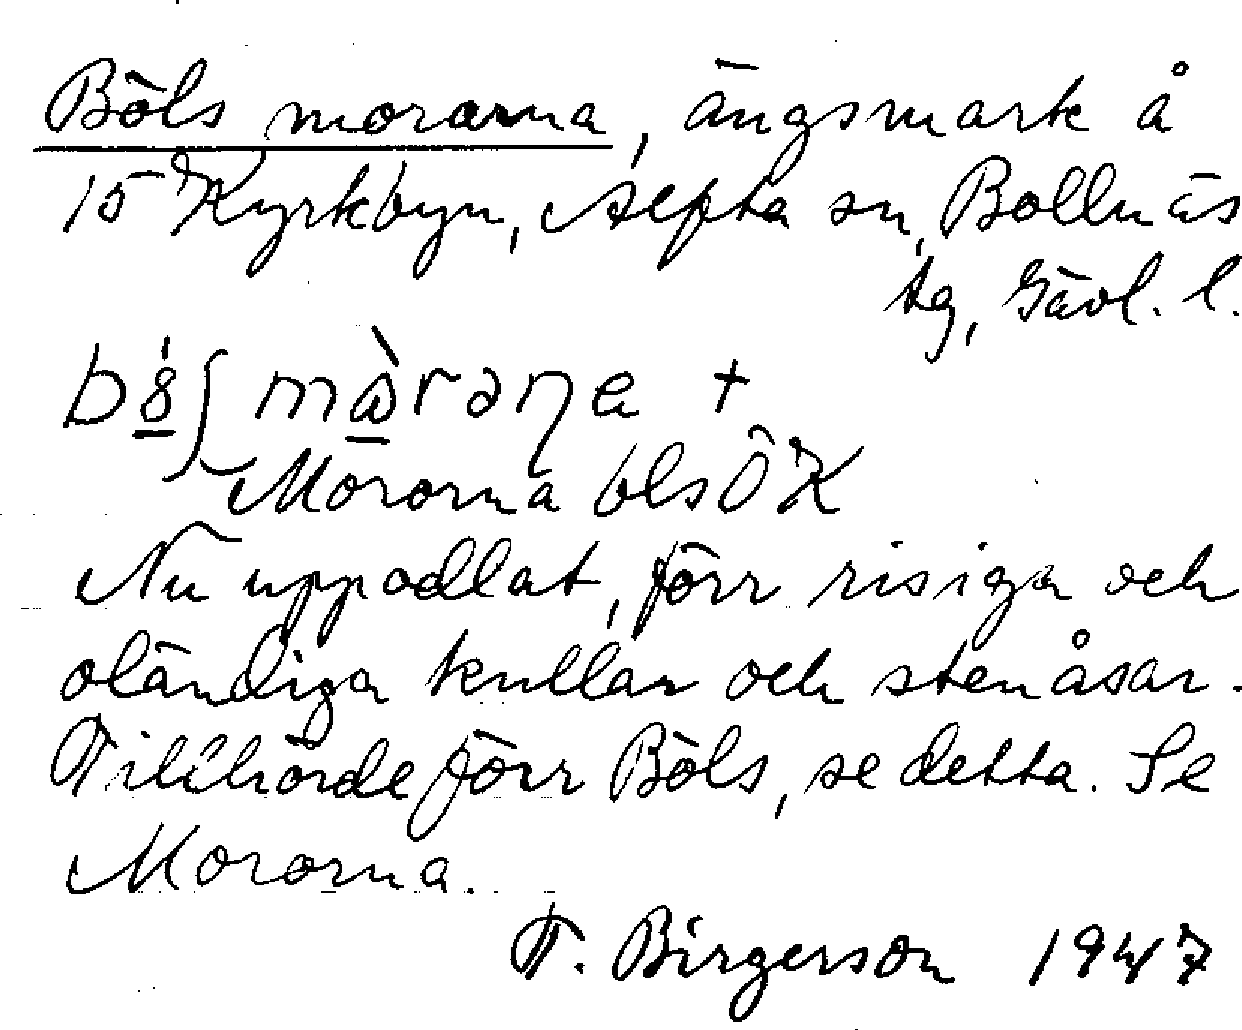 Böls morarna, ängsmark å
15 Kyrkbyn, Alfta sn, Bollnäs
tg, Gävl. l.
mòrana +
Mororna bls ÖK
Nu uppodlat, förr risiga och
oländiga kullar och stenåsar.
Tillhörde förr Böls, se detta. Se
Mororna.
T. Birgerson 1947